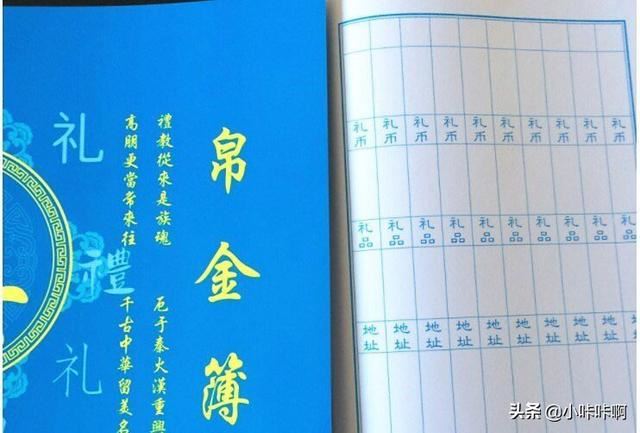 帛金簿
禮教從來是族魂 厄于秦火漢重興
高朋更當常來往 千古中華留美名
礼 禮 礼
礼币 礼币 礼币 礼币 礼币 礼币 礼币 礼币 礼币
礼品 礼品 礼品 礼品 礼品 礼品 礼品 礼品 礼品
地址 地址 地址 地址 地址 地址 地址 地址 地址
头条 @小咔咔啊